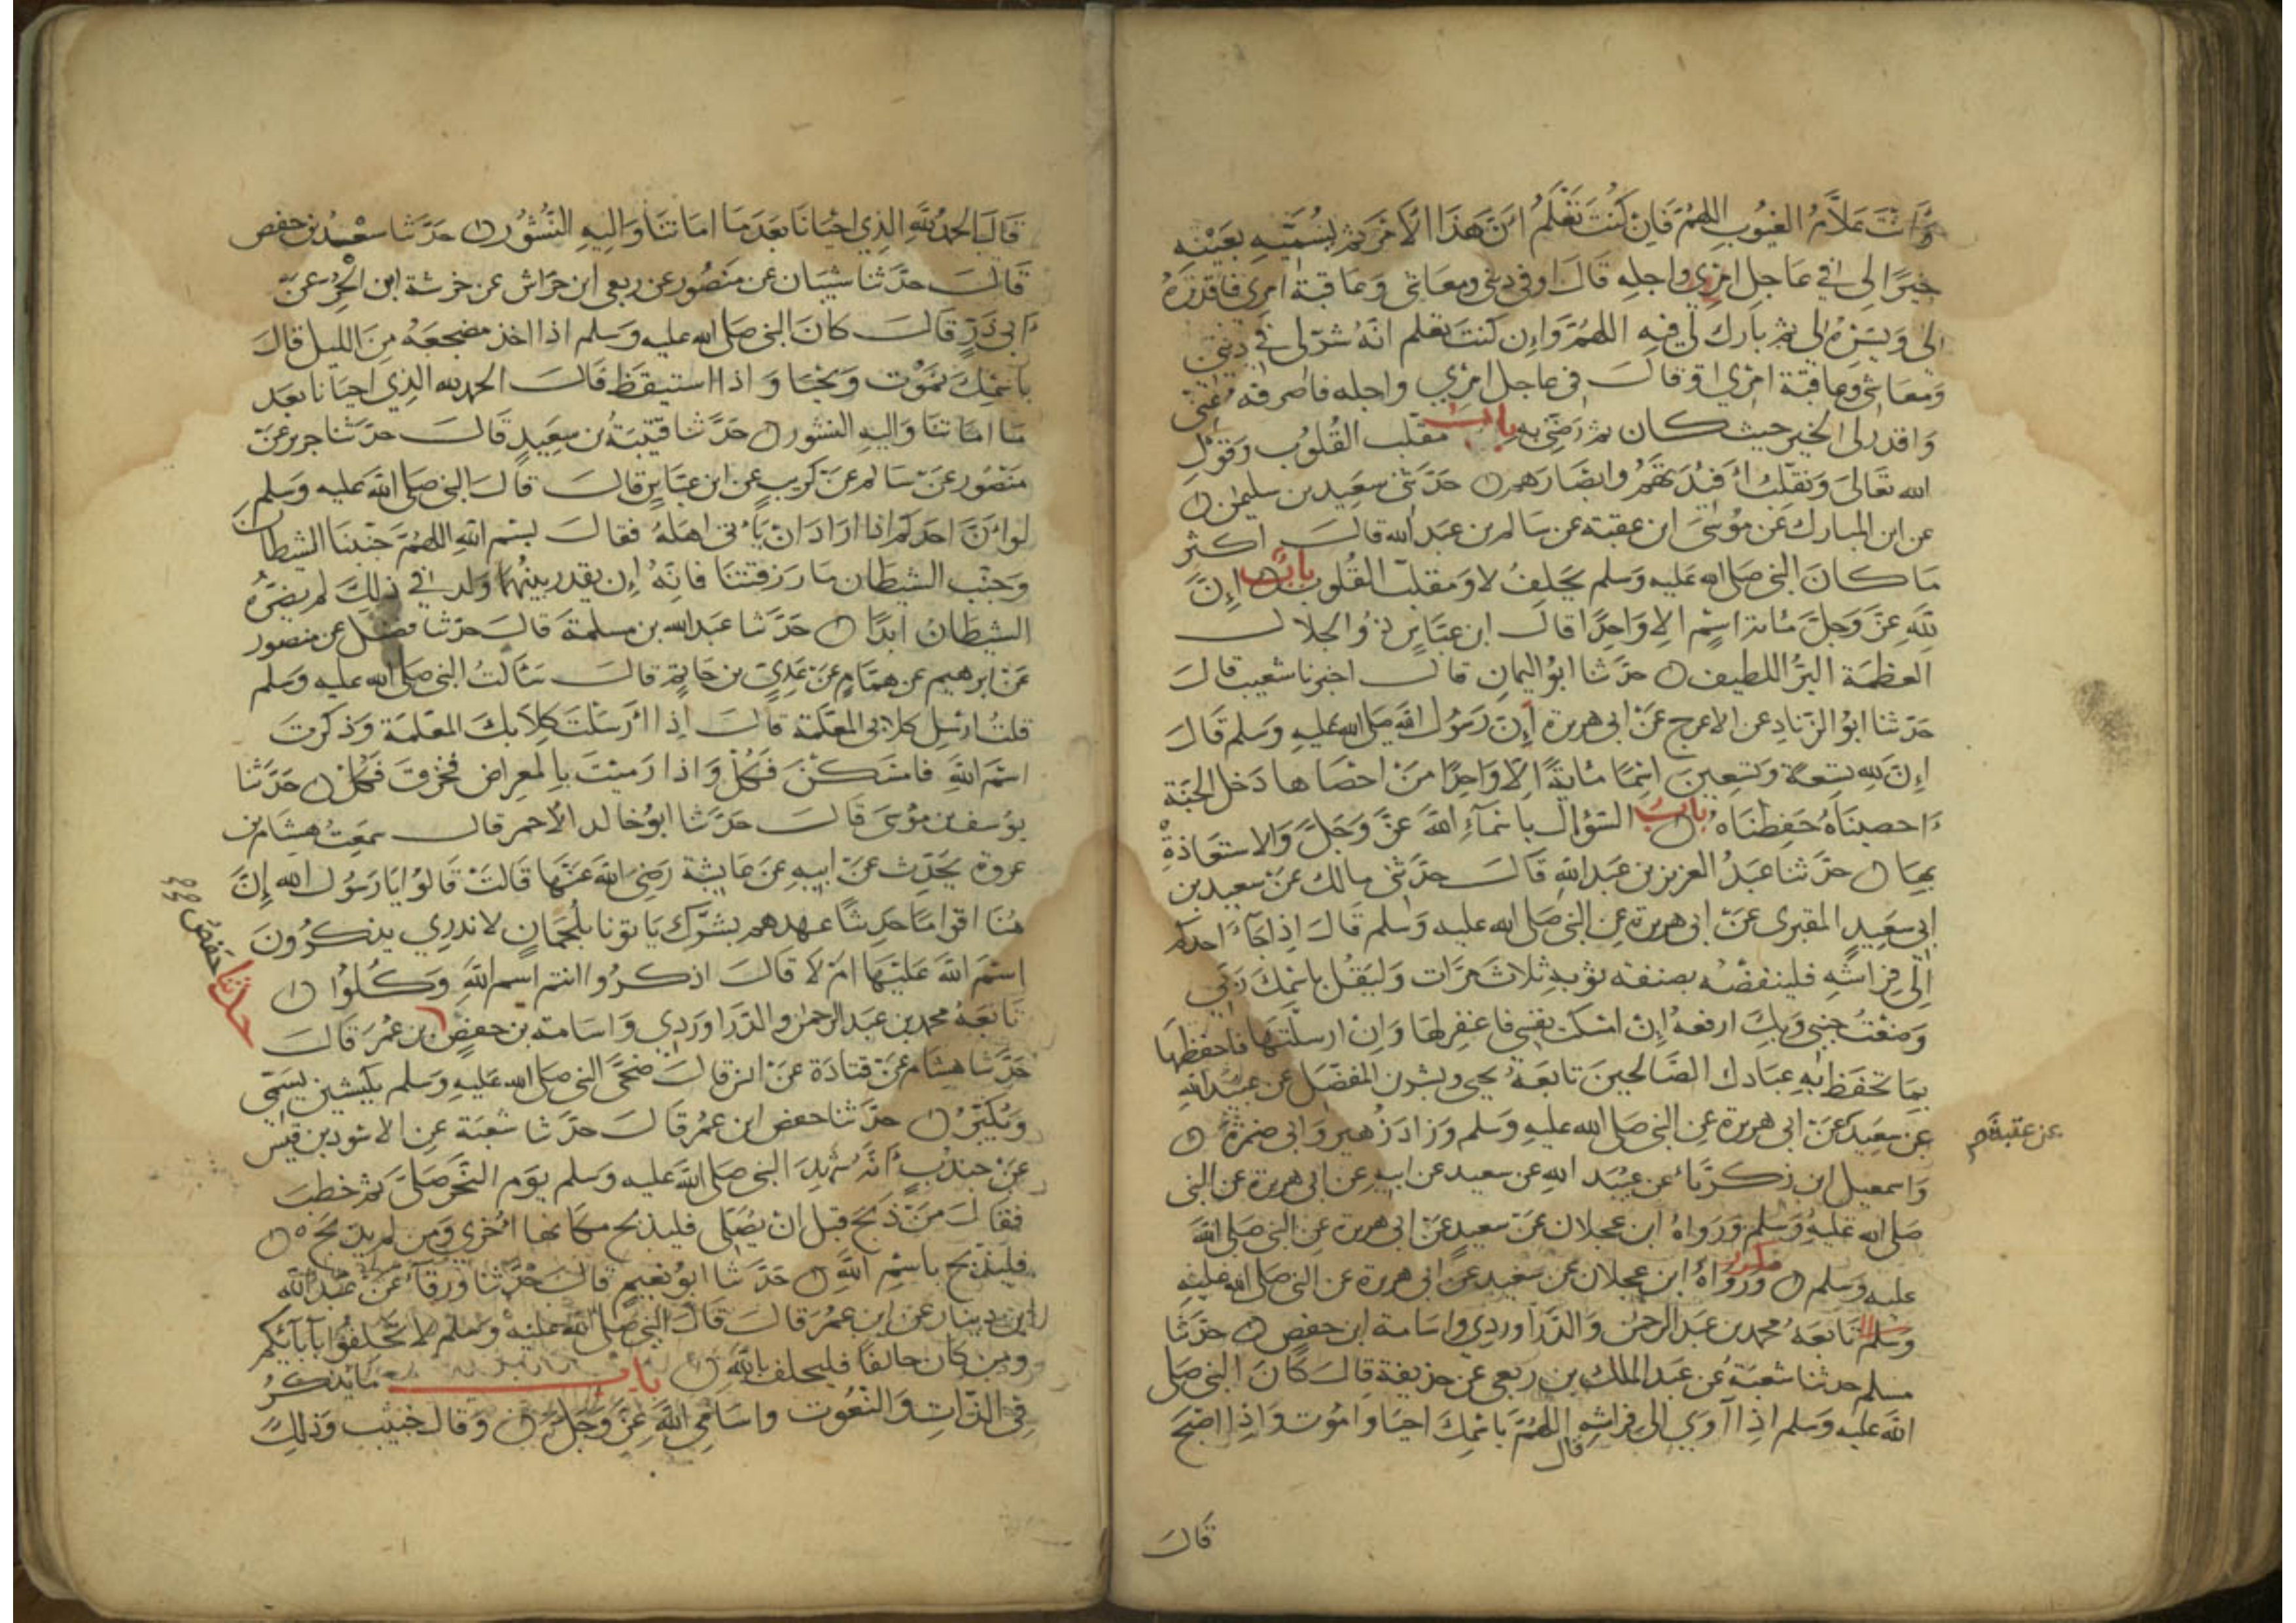 وَأنْتَ عَلاَّمُ الغيُوبِ اللهمَّ فَاِنْ كُنتَ تَعْلَمُ اَنَّ هَذَا الْاَمْرَ ثم يُسَمّيهِ بعَيْنِه
خيرًا لِى في عَاجلِ امْرِي واجلِه قَالَ اوفى دينى ومعَاشى وَعَاقبة امرى فاقدرْهُ
لى وَيَسّرْهُ لى ثم بارك لي فيه اللهُمَّ وَاِن كنتَ تعلم انّهُ شرّ لى فى دينى
وَمعَاشى وعاقبَة امْرِي اوْ قالَ فى عاجل امْرِي واجله فاصرفه عَنّى
وَاقدر لى الخير حيث كان ثم رَضّنِى به بابُ مقلّب القُلوُب وَقوْلِ
الله تعَالىَ وَنقلّبُ اَفْئِدَتَهُمْ وابْصَارَهم حَدّثنى سَعِيد بن سليمٰن
عن ابن المبارك عَن مُوسَى ابن عقبة عن سَالم بن عَبد الله قالَ اكثر
مَا كَانَ النبى صَلى الله عَليه وَسلم يَحلِفُ لا وَمقلّب القُلوب بابٌ اِنَّ
لِلّهِ عَزَّ وَجلَّ مائة اسْمٍ الا وَاحِدًا قالَ ابن عبّاسٍ ذُو الجلالِ
العظمَة البَرُّ اللطيف حدّثنا ابوُ اليمانِ قالَ اخبرنا شعيب قالَ
حَدّثنا ابوُ الزنادِ عن الاعرج عَنْ ابى هريرة اِنّ رَسُول الله صَلى الله عليهِ وَسلم قَالَ
اِنّ للهِ تسِعَة وتسِعينَ اسْمًا مائةً اِلّا وَاحِدًا مَنْ احْصَاها دَخل الجنّة
اَحصينَاهُ حَفِظنَاهُ بابُ السّؤال باسْمآءِ اللهَ عَزَّ وَجَلَّ وَالاستعَاذةِ
بهَا حدّثنا عَبدُ العَزيز بن عَبدِ اللهِ قَالَ حدّثنى مالك عَنْ سعيد بن
ابى سَعِيدٍ المقبرى عَنْ ابى هريرة عن النبى صَلى الله عليه وَسلم قَالَ اِذا جَآءَ احدكم
اِلَى فِرَاشِهِ فلينفضْهُ بصنفة ثوبه ثلاثَ مَرّات وَليقُل باسْمِكَ رَبّي
وَضعْتُ جنبى وَبكَ ارفعهُ اِنْ امْسَكتَ نفسِى فاغفر لهَا وَاِنْ ارسلتَهَا فاحفظهَا
بمَا تحفظ بهِ عبَادك الصَّالحينَ تابعَهُ يحيى وبشر بن المفضّل عن عبيد اللهِ
عن سَعِيد عَنْ ابى هريرة عن النبى صَلى الله عليهِ وَسلم وَزادَ زُهير وَابى ضمرة
عن عقبة م
وَاسمعيل ابن زكريّاء عن عبَيد اللهِ عن سعيد عن ابيهِ عن ابى هريرة عن النبى
صَلى الله عَليهِ وَسَلم وَرَوَاهُ ابن عجلان عَنْ سَعيد عَنْ ابى هريرة عن النبى صَلى الله
عليه وَسلم مكرر وَرَوَاهُ ابن عجلان عن سَعيد عن ابى هريرة عن النبى صَلى الله عليهِ
وَسلم تَابعَهُ محمد بن عَبد الرحمن وَالدَّرَاوردي واسَامة ابن حفصٍ حدّثنا
مسلم حدثنا شعبَةُ عن عَبد الملك بن ربعى عن حذيفة قالَ كَانَ النبى صَلى
اللهَ عليه وَسلم اذِا آوَى الى فراشِهِ قال اللهُمَّ باسْمِكَ احيَا وامُوت وَاذِا اصْبَحَ
قالَ
قَالَ الحمدُ للهِ الذِي احْيَانَا بَعدَ مَا امَاتنَا وَاليهِ النُّشُور حَدَّثنا سعْدُ بن حفص
قَالَ حدّثنا شيبَان عَن مَنْصُور عَن ربعى ابن حِرَاش عن خرشة ابن الْحُرِّ عَنْ
اَبى ذَرٍّ قَالَ كانَ النبى صَلى الله عليه وَسلم اذا اخذ مضجعَهُ مِنَ الليل قالَ
باسْمِكَ نمُوْت وَنحْيَا وَاذا استيقظَ قَالَ الحمد لله الذِي احيَانا بعَد
مَا امَاتنَا وَاليهِ النشور حَدّثنا قتيبَةُ بن سعِيدٍ قَالَ حدّثنا جرير عَنْ
مَنْصُور عَنْ سَالم عَنْ كُرَيبٍ عَن ابن عبّاسٍ قالَ قالَ النبى صَلى الله عَليه وَسَلم
لوْ اَنَّ احَدَكم اذا ارَادَ اَنْ يَأتى اهلهُ فقالَ بسْم اللهِ اللهُمَّ جَنّبنَا الشيطانَ
وَجنّب الشيطَان مَا رَزقتنَا فانهُ اِن يقدر بينهُمَا وَلد في ذلِكَ لم يضرّهُ
الشيطَانُ ابَدًا حَدَّثنا عَبد الله بن مسلمةَ قالَ حدّثنا فضيْل عن منصور
عَنْ ابرهيم عن همَّامٍ عَنْ عَدِيّ بن حَاتمٍ قالَ سَألتُ النبى صَلى الله عليه وَسَلم
قلتُ ارْسِل كلابى المعَلّمَة قالَ اِذا اَرْسَلْتَ كِلاَبكَ المعَلّمَة وَذكرتَ
اسْمَ اللهِ فامْسَكْنَ فَكُلْ وَاذا رَمَيْتَ بالمعراض فخزقَ فَكُلْ حَدَّثنا
يوُسف بن مُوسَى قَالَ حَدَّثنا ابوُ خَالد الْأحمر قال سَمعْتُ هشام بن
عروة يحدّث عَنْ ابيهِ عَنْ عايشة رَضى الله عَنْهَا قالَتْ قالوُا يَا رَسُول الله اِنَّ
هُنَا اقوَامًا حديثًا عهدهم بشرْك يَأتونا بلُحمَانٍ لا ندري يذكرُونَ
اِسْمَ اللهَ عَلَيْهَا امْ لَا قَالَ اذكرُوا انتم اسم اللهِ وَكُلوُا
تابَعَهُ محمد بن عَبد الرحمن وَالدَّرَاوَرْدِي وَاسَامة بن حفصٍ بن عُمَر قَالَ
حدثنا حَفص
حَدّثنا هِشَام عَنْ قتادَة عَنْ انس قالَ ضحَّى النبى صلى الله عَليه وَسلم بكبشين يُسَمّى
وَيُكَبِّرُ حدّثنا حفص ابن عمُر قَالَ حدّثنا شعْبَة عن الاسْود بن قيس
عَنْ جندبٍ اَنّهُ شهدَ النبى صَلى اللهَ عَليه وَسلم يوَم النّحر صَلّى ثم خطبَ
فقالَ مَنْ ذَبَحَ قبل انْ يُصَلى فليذبح مكانها اُخرَى وَمن لم يذبَحْ
فليذبح باسْمِ اللهِ حَدّثنا ابوُ نعيمٍ قالَ حَدّثنا وَرقاءُ عَنْ عَبْد الله
ابن دينار عن ابن عمُر قالَ قالَ النبى صَلى اللهَ عَليه وَسلم لا تحلفُوا بآبآئكم
ومن كان حالفًا فليحلف باللهِ باب مَا يُذكرُ
فى الذَّاتِ وَالنُعُوت واسَامِى اللهَ عَزَّ وَجَلَّ وَقالَ خبيْب وَذلِكَ